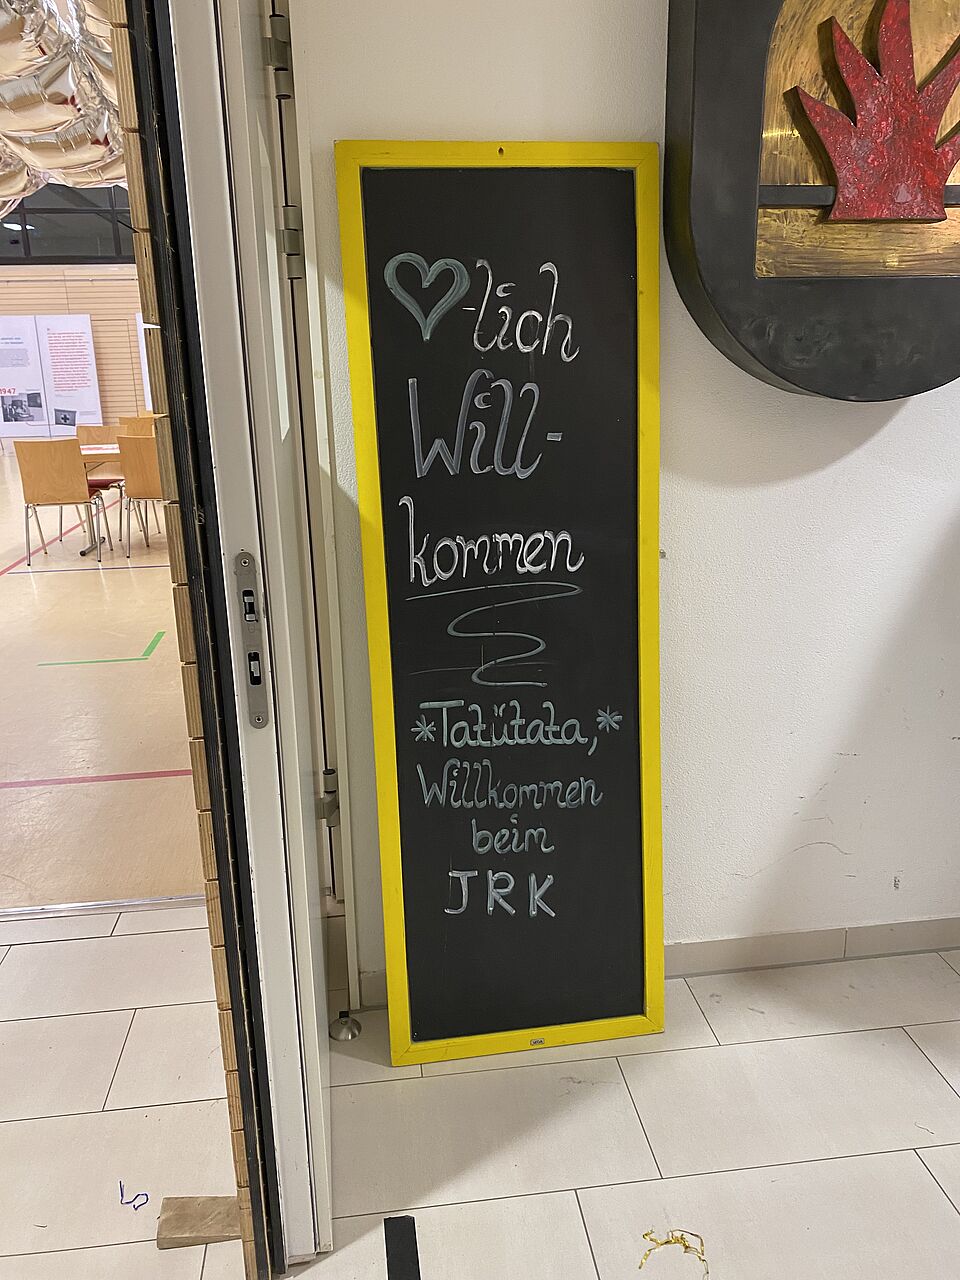 ♡-lich
Will-
kommen
*Tatütata,*
Willkommen
beim
JRK
1947